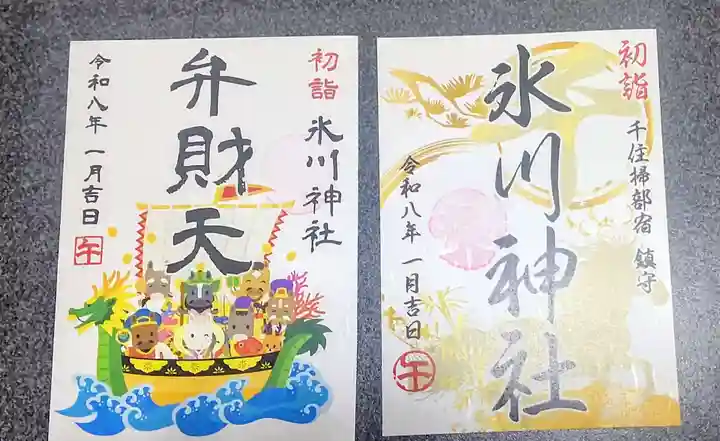 初詣
氷川神社
弁財天
令和八年 一月吉日
午
初詣
千住掃部宿 鎮守
氷川神社
令和八年 一月吉日
午